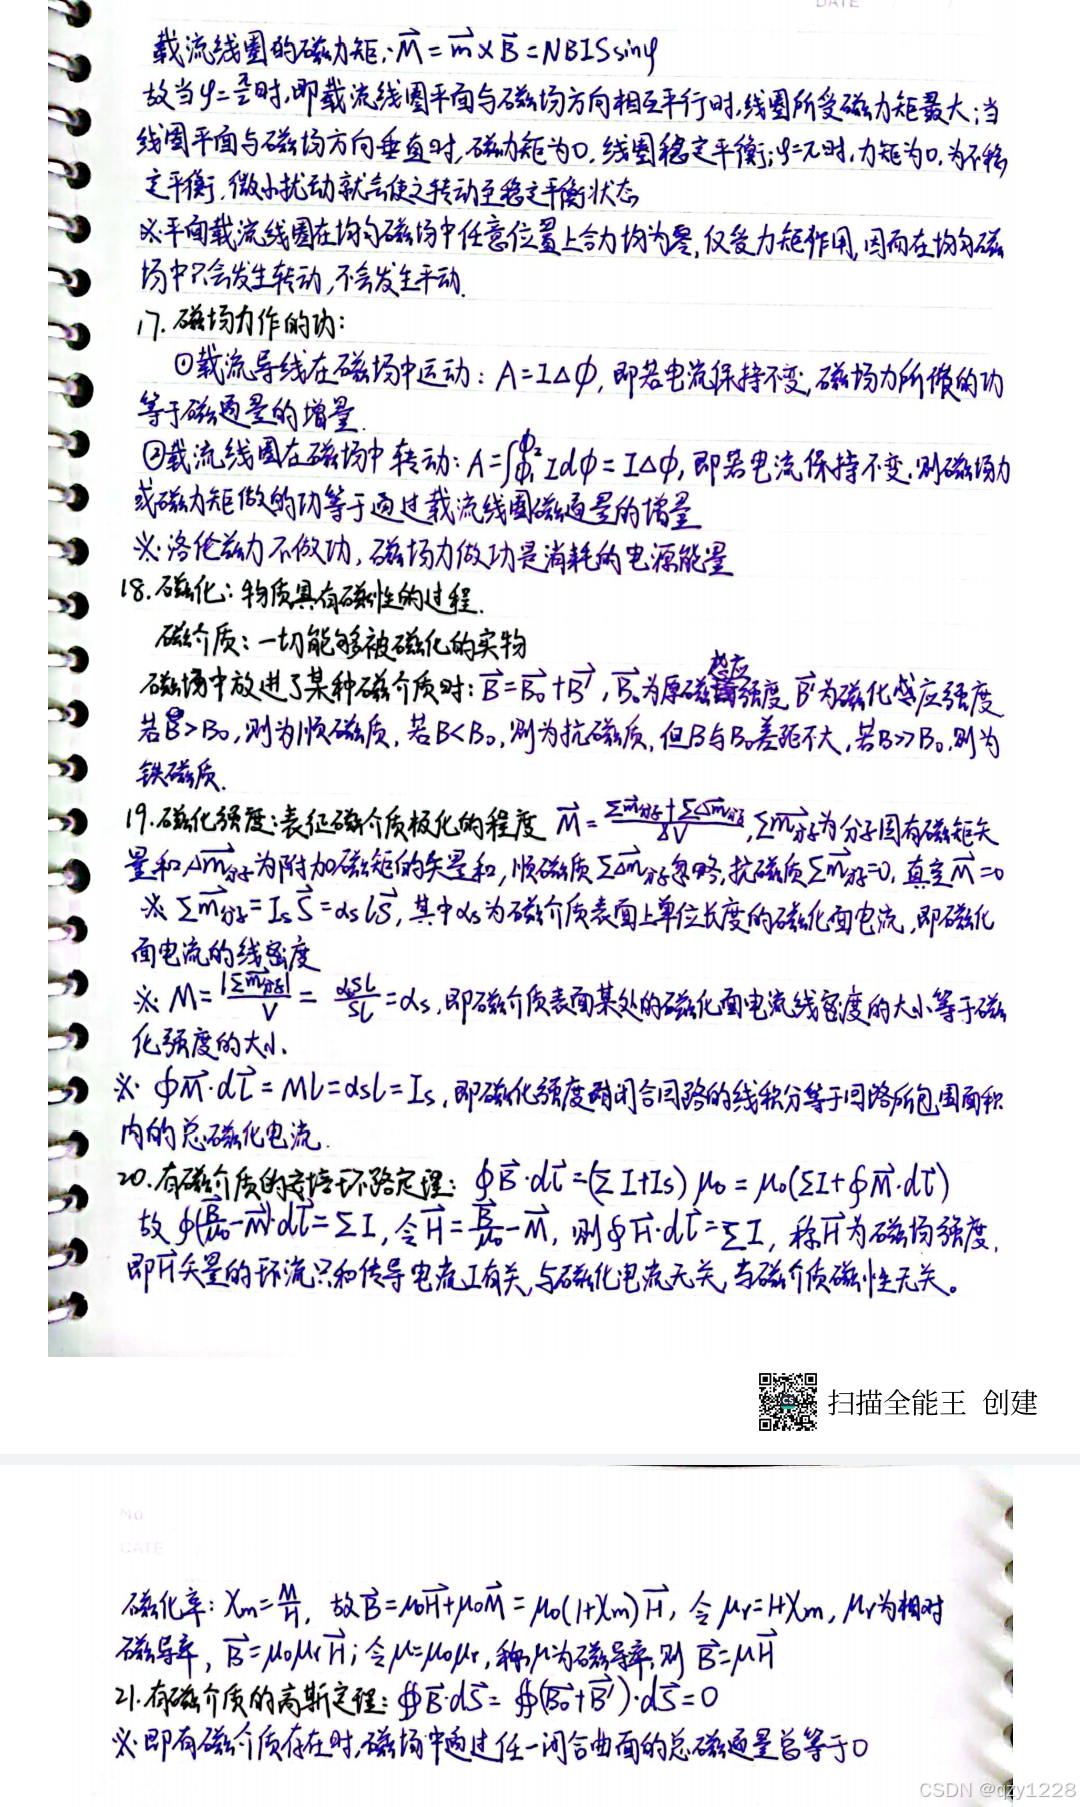 DATE
载流线圈的磁力矩:M⃗=m⃗×B⃗=NBISsinφ
故当φ=π/2时,即载流线圈平面与磁场方向相互平行时,线圈所受磁力矩最大;当
线圈平面与磁场方向垂直时,磁力矩为0,线圈稳定平衡;φ=π时,力矩为0,为不稳
定平衡,微小扰动就会使之转动至稳定平衡状态
※平面载流线圈在均匀磁场中任意位置上合力均为零,仅受力矩作用,因而在均匀磁
场中只会发生转动,不会发生平动.
17.磁场力作的功:
①载流导线在磁场中运动:A=IΔΦ,即若电流保持不变,磁场力所做的功
等于磁通量的增量.
②载流线圈在磁场中转动:A=∫_Φ₁^Φ₂ Idφ=IΔφ,即若电流保持不变,则磁场力
或磁力矩做的功等于通过载流线圈磁通量的增量
※洛伦兹力不做功,磁场力做功是消耗的电源能量
18.磁化:物质具有磁性的过程.
磁介质:一切能够被磁化的实物
磁场中放进了某种磁介质时:B⃗=B⃗₀+B⃗′,B⃗₀为原磁感应强度,B⃗′为磁化感应强度
若B>B₀,则为顺磁质,若B<B₀,则为抗磁质,但B与B₀差距不大,若B>>B₀,则为
铁磁质.
19.磁化强度:表征磁介质极化的程度 M⃗=(Σm⃗分子+ΣΔm⃗分子)/ΔV,Σm⃗分子为分子固有磁矩矢
量和,Δm⃗分子为附加磁矩的矢量和,顺磁质ΣΔm⃗分子忽略,抗磁质Σm⃗分子=0,真空M⃗=0
※Σm⃗分子=IsS⃗=αslS⃗,其中αs为磁介质表面上单位长度的磁化面电流,即磁化
面电流的线密度
※M=|Σm⃗分子|/V=αsSl/Sl=αs,即磁介质表面某处的磁化面电流线密度的大小等于磁
化强度的大小.
※∮M⃗·dl⃗=Ml=αsl=Is,即磁化强度对闭合回路的线积分等于回路所包围面积
内的总磁化电流.
20.有磁介质的安培环路定理:∮B⃗·dl⃗=(ΣI+Is)μ₀=μ₀(ΣI+∮M⃗·dl⃗)
故∮(B⃗/μ₀-M⃗)·dl⃗=ΣI,令H⃗=B⃗/μ₀-M⃗,则∮H⃗·dl⃗=ΣI,称H⃗为磁场强度,
即H⃗矢量的环流只和传导电流I有关,与磁化电流无关,与磁介质磁性无关。
扫描全能王 创建
No
DATE
磁化率:χm=M/H,故B⃗=μ₀H⃗+μ₀M⃗=μ₀(1+χm)H⃗,令μr=1+χm,μr为相对
磁导率,B⃗=μ₀μrH⃗;令μ=μ₀μr,称μ为磁导率,则B⃗=μH⃗
21.有磁介质的高斯定理:∯B⃗·dS⃗=∯(B⃗₀+B⃗′)·dS⃗=0
※即有磁介质存在时,磁场中通过任一闭合曲面的总磁通量总等于0
CSDN @qzy1228